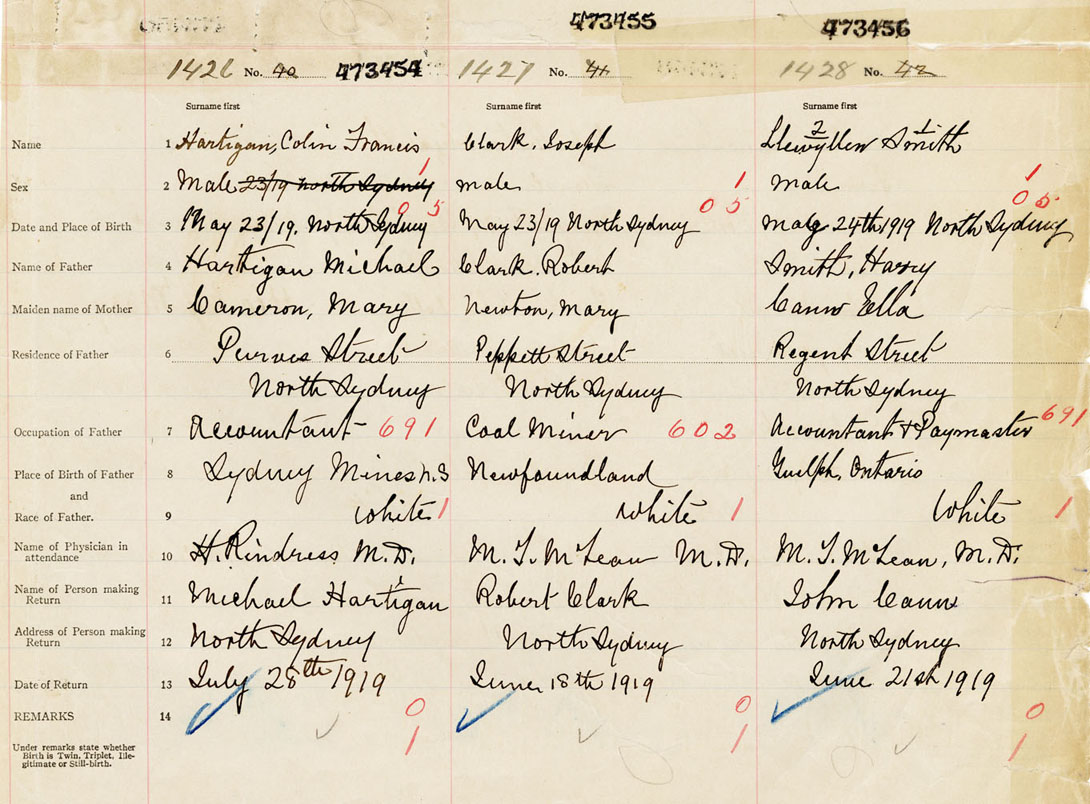 473455
473456
1426 No. 40 473454 1427 No. 41 1428 No. 42
Surname first Surname first Surname first
Name 1 Hartigan, Colin Francis Clark. Joseph Llewyllen Smith
2 1
Sex 2 Male 23/19 North Sydney 1 male 1 male 1
0 5 0 5 0 5
Date and Place of Birth 3 May 23/19. North Sydney May 23/19 North Sydney May 24th 1919 North Sydney
Name of Father 4 Hartigan Michael Clark. Robert Smith, Harry
Maiden name of Mother 5 Cameron, Mary Newton, Mary Cann Ella
Residence of Father 6 Purves Street Peppett Street Regent Street
North Sydney North Sydney North Sydney
Occupation of Father 7 Accountant 691 Coal Miner 602 Accountant & Paymaster 691
Place of Birth of Father 8 Sydney Mines N.S Newfoundland Guelph, Ontario
and
Race of Father. 9 White 1 White 1 White 1
Name of Physician in attendance 10 H. Rindress M.D. M. T. McLean M.D. M. T. McLean, M.D.
Name of Person making Return 11 Michael Hartigan Robert Clark John Cann
Address of Person making Return 12 North Sydney North Sydney North Sydney
Date of Return 13 July 28th 1919 June 18th 1919 June 21st 1919
REMARKS 14 0 0 0
1 1 1
Under remarks state whether
Birth is Twin, Triplet, Ille-
gitimate or Still-birth.